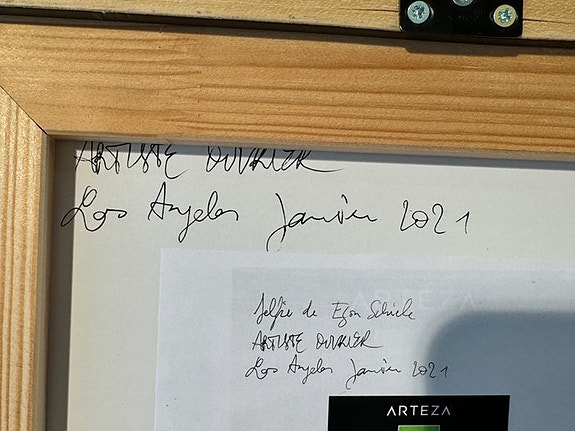 ARTISTE OUVRIER
Los Angeles Janvier 2021
ARTEZA
Selfie de Egon Schiele
ARTISTE OUVRIER
Los Angeles Janvier 2021
ARTEZA